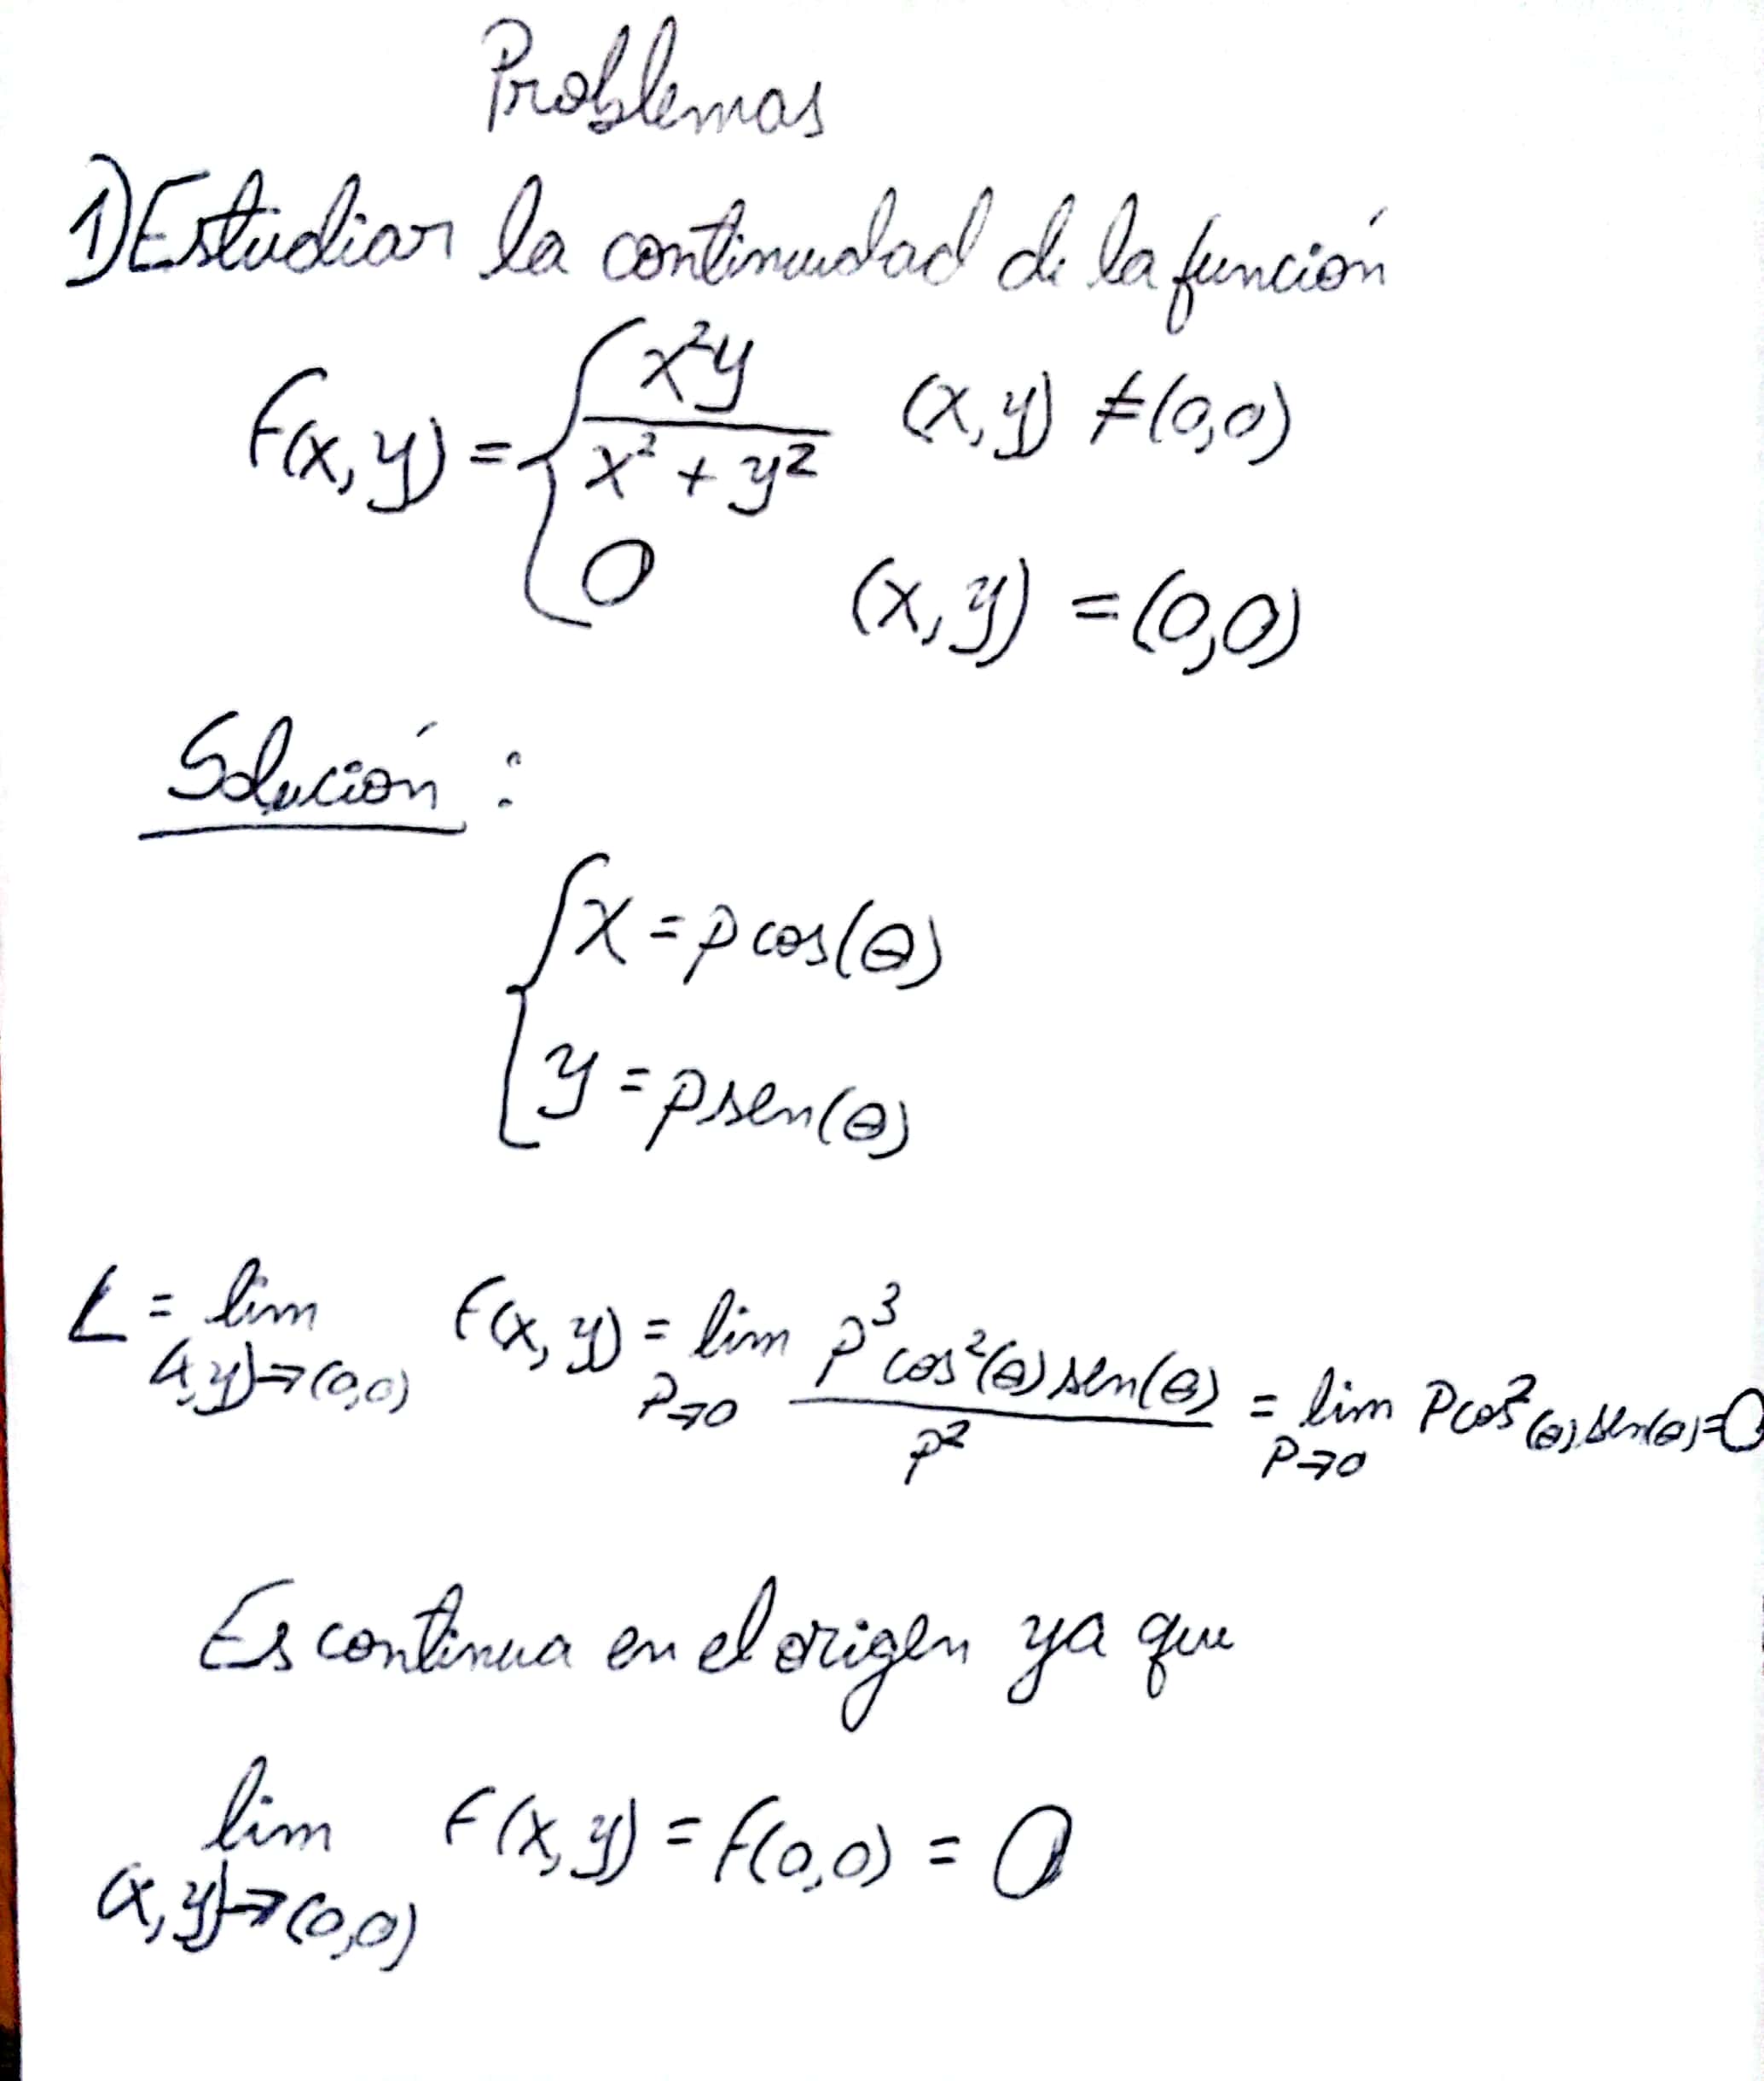 Problemas
1) Estudiar la continuidad de la función
F(x,y) = { x²y / (x² + y²)   (x,y) ≠ (0,0)
0   (x,y) = (0,0)
Solución :
{ x = ρ cos(θ)
y = ρ sen(θ)
L = lim (x,y)→(0,0) F(x,y) = lim ρ→0 ρ³ cos²(θ) sen(θ) / ρ² = lim ρ→0 ρ cos²(θ) sen(θ) = 0
Es continua en el origen ya que
lim (x,y)→(0,0) F(x,y) = f(0,0) = 0